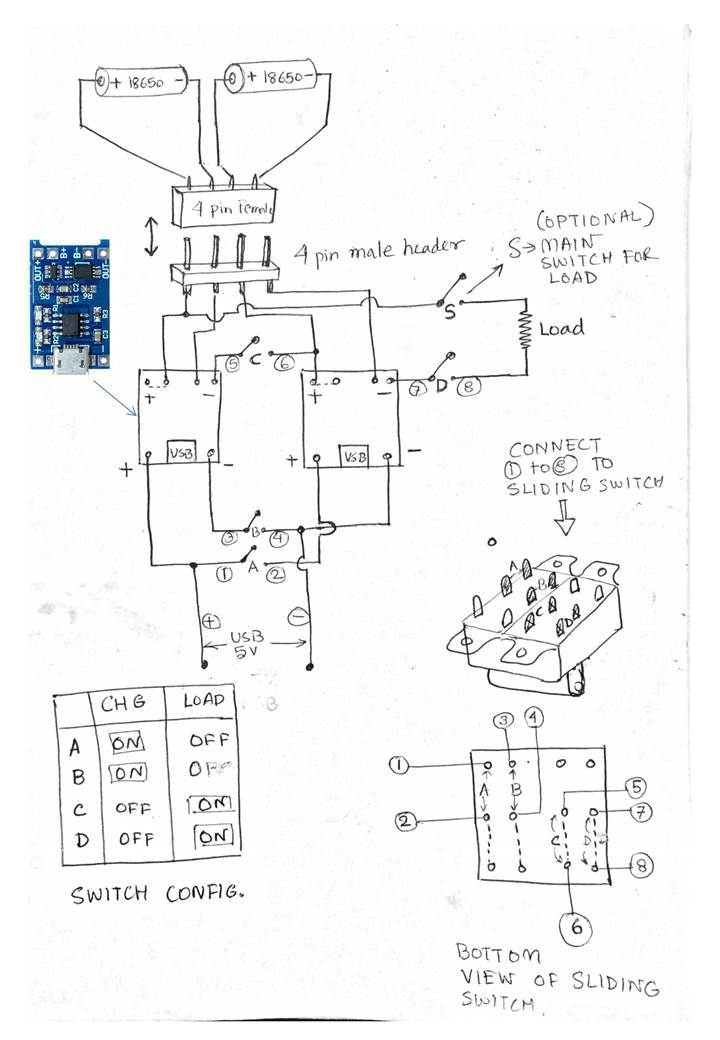 + 18650 -
+ 18650 -
4 pin Female
4 pin male header
(OPTIONAL)
S→ MAIN
SWITCH FOR
LOAD
OUT+ B+ B- OUT-
R3
C2
C1
C3
S
Load
5 C 6
7 D 8
+ -
+ -
USB
USB
+ -
+ -
3 B 4
1 A 2
+ -
USB
5V
CONNECT
1 to 8 TO
SLIDING SWITCH
A
B
C
D
CHG LOAD
A ON OFF
B ON OFF
C OFF ON
D OFF ON
SWITCH CONFIG.
3 4
1
A B
5
2
7
C D
8
6
BOTTOM
VIEW OF SLIDING
SWITCH.